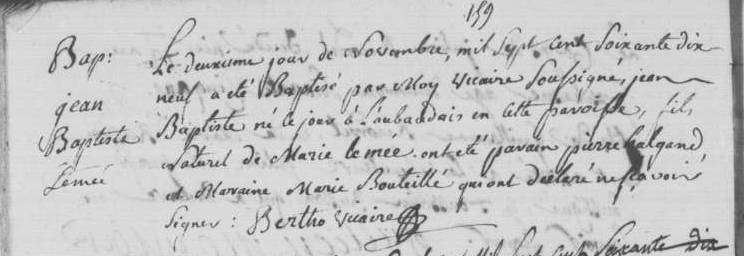 159
Bap:
jean
Baptiste
Lemée
Le deuxieme jour de Novembre, mil Sept cent Soixante dix
neuf a eté Baptisé par Moy Vicaire Soussigné, jean
Baptiste né le jour à Laubaudais en cette paroisse, fils
Naturel de Marie lemée. ont eté parain pierre halgand
et Maraine Marie Bouteillé qui ont declaré ne sçavoir
signer : Bertho Vicaire
mil Sept cent Soixante dix